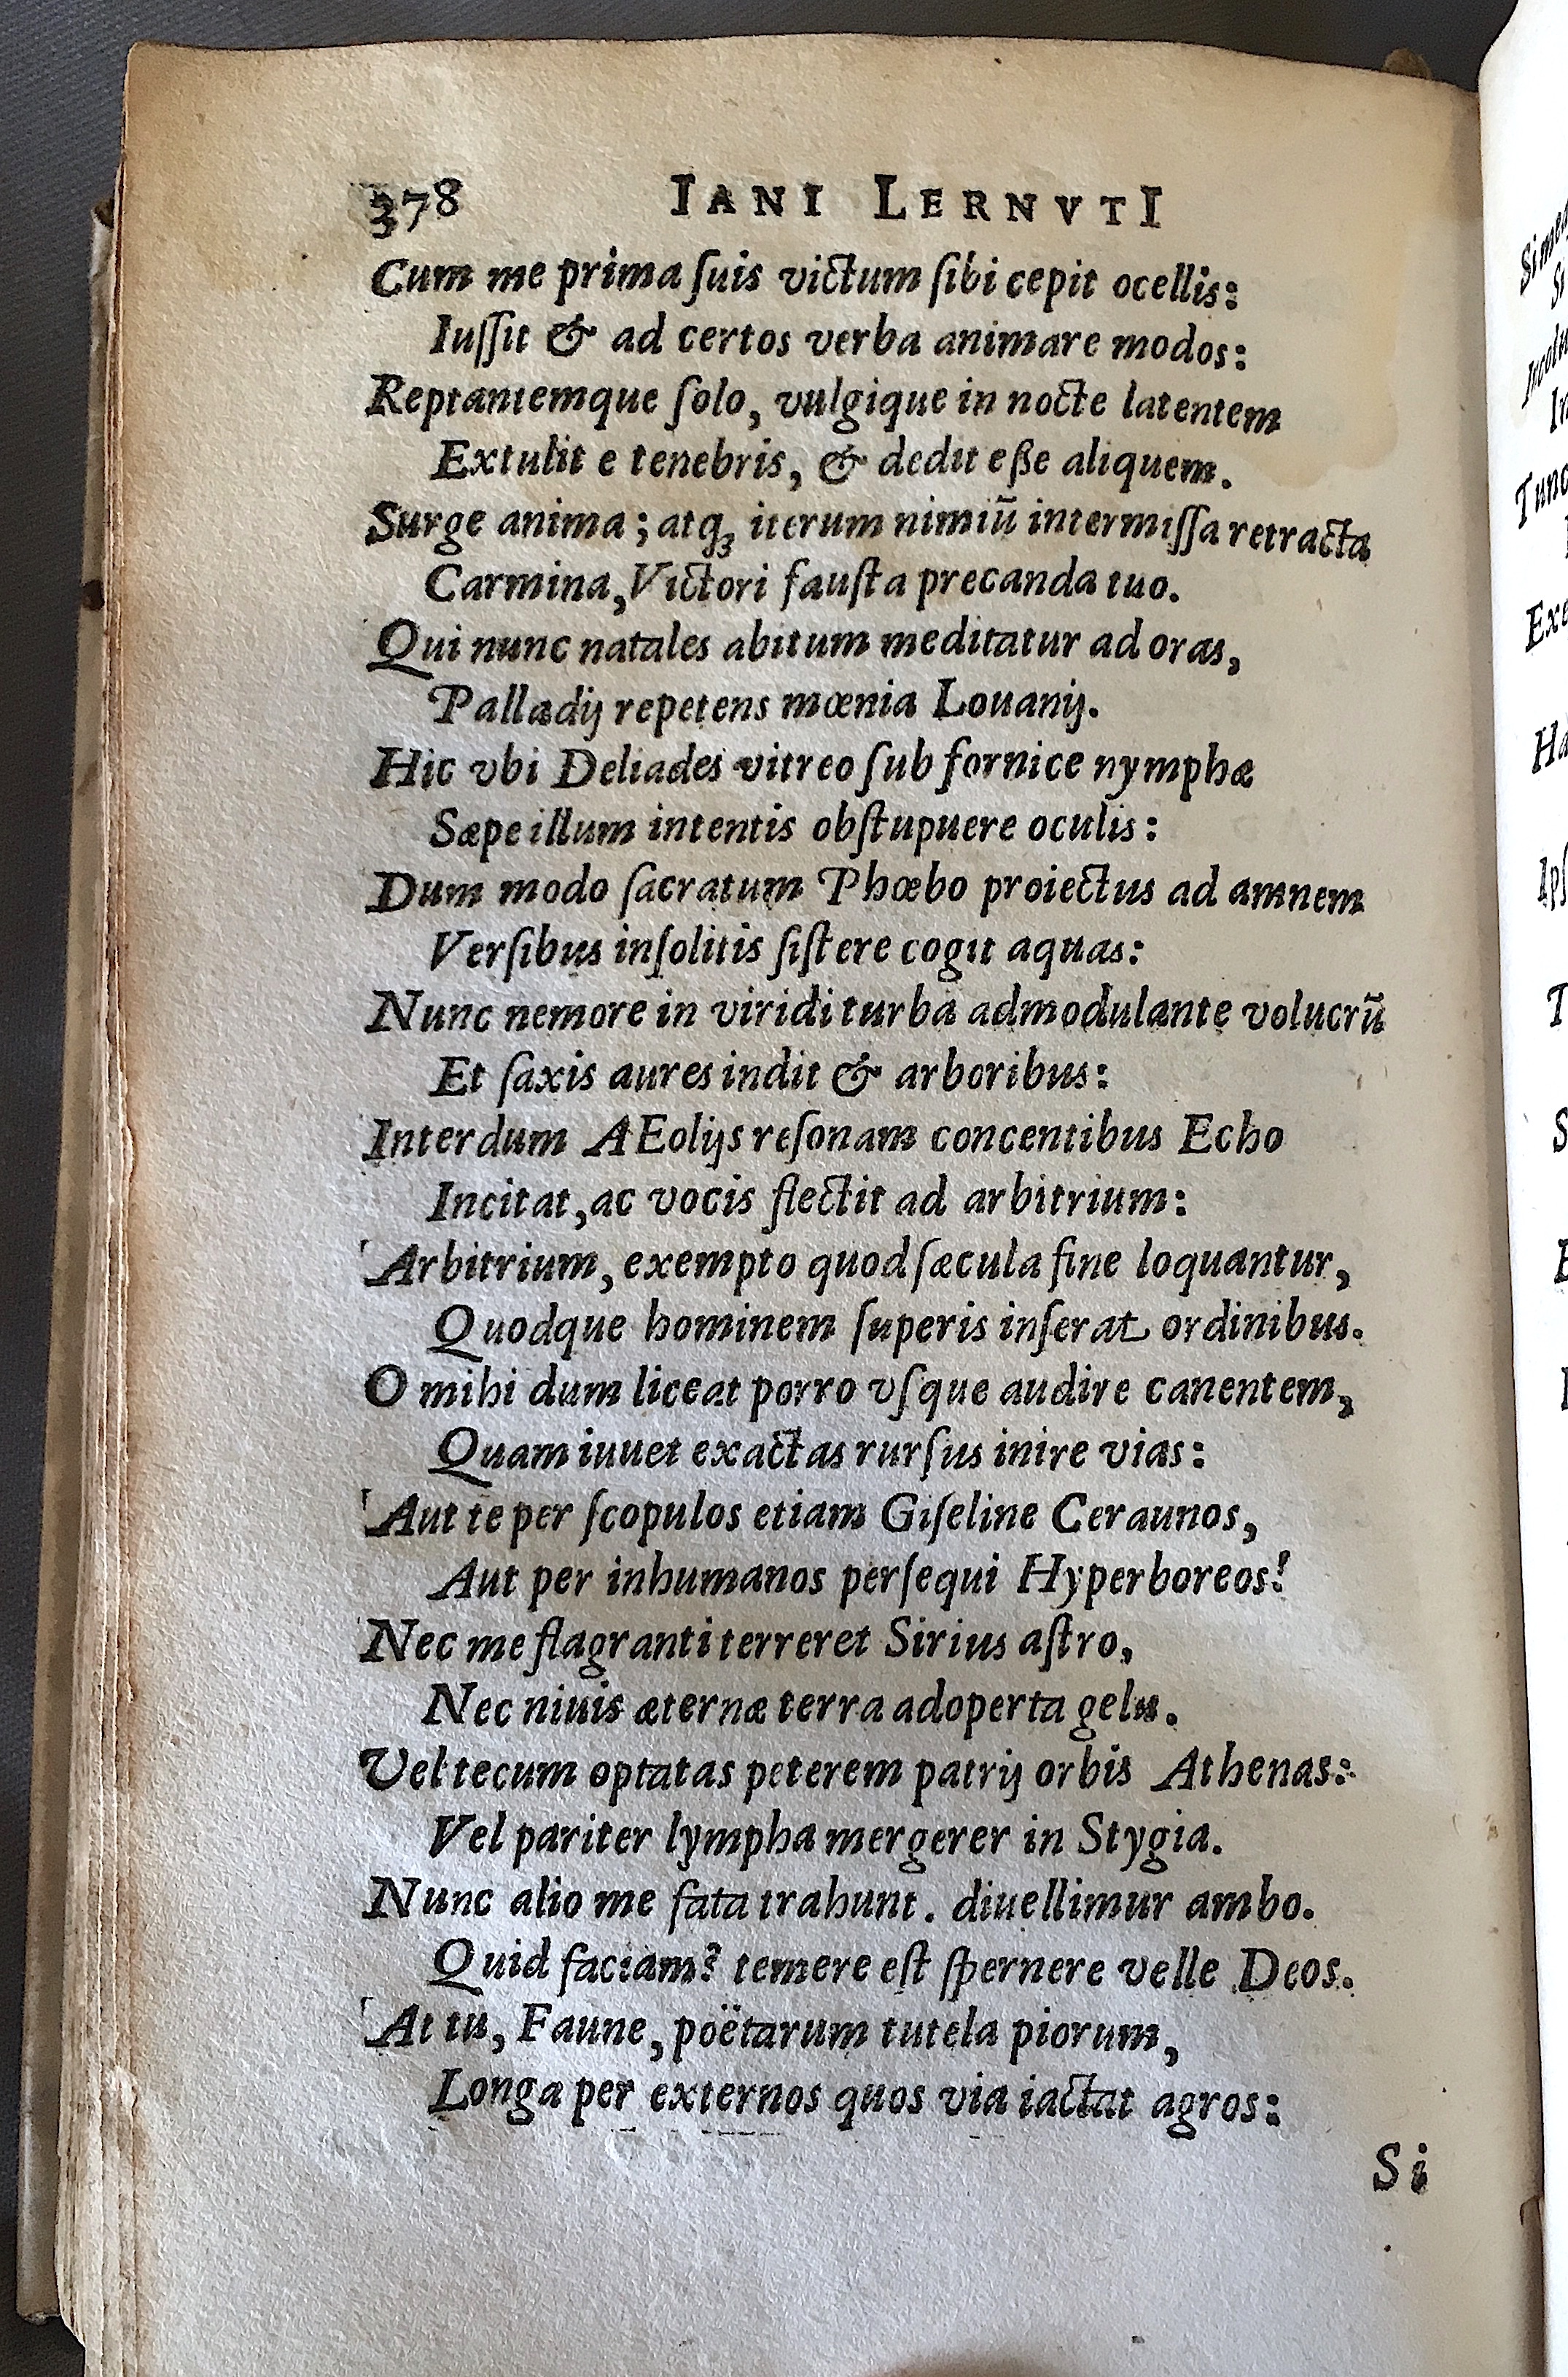 378 IANI LERNVTI
Cum me prima ſuis victum ſibi cepit ocellis:
Iuſſit & ad certos verba animare modos:
Reptantemque ſolo, vulgique in nocte latentem
Extulit e tenebris, & dedit eße aliquem.
Surge anima; atq₃ iterum nimiū intermiſſa retracta
Carmina, Victori fauſta precanda tuo.
Qui nunc natales abitum meditatur ad oras,
Palladij repetens mœnia Louanij.
Hic vbi Deliades vitreo ſub fornice nymphæ
Sæpe illum intentis obſtupuere oculis:
Dum modo ſacratum Phœbo proiectus ad amnem
Verſibus inſolitis ſiſtere cogit aquas:
Nunc nemore in viridi turba admodulante volucrū
Et ſaxis aures indit & arboribus:
Interdum AEolijs reſonam concentibus Echo
Incitat, ac vocis flectit ad arbitrium:
Arbitrium, exempto quod ſæcula fine loquantur,
Quodque hominem ſuperis inſerat ordinibus.
O mihi dum liceat porro vſque audire canentem,
Quam iuuet exactas rurſus inire vias:
Aut te per ſcopulos etiam Giſeline Ceraunos,
Aut per inhumanos perſequi Hyperboreos!
Nec me flagranti terreret Sirius aſtro,
Nec niuis æternæ terra adoperta gelu.
Vel tecum optatas peterem patrij orbis Athenas:
Vel pariter lympha mergerer in Stygia.
Nunc alio me fata trahunt. diuellimur ambo.
Quid faciam? temere eſt ſpernere velle Deos.
At tu, Faune, poëtarum tutela piorum,
Longa per externos quos via iactat agros:
Si